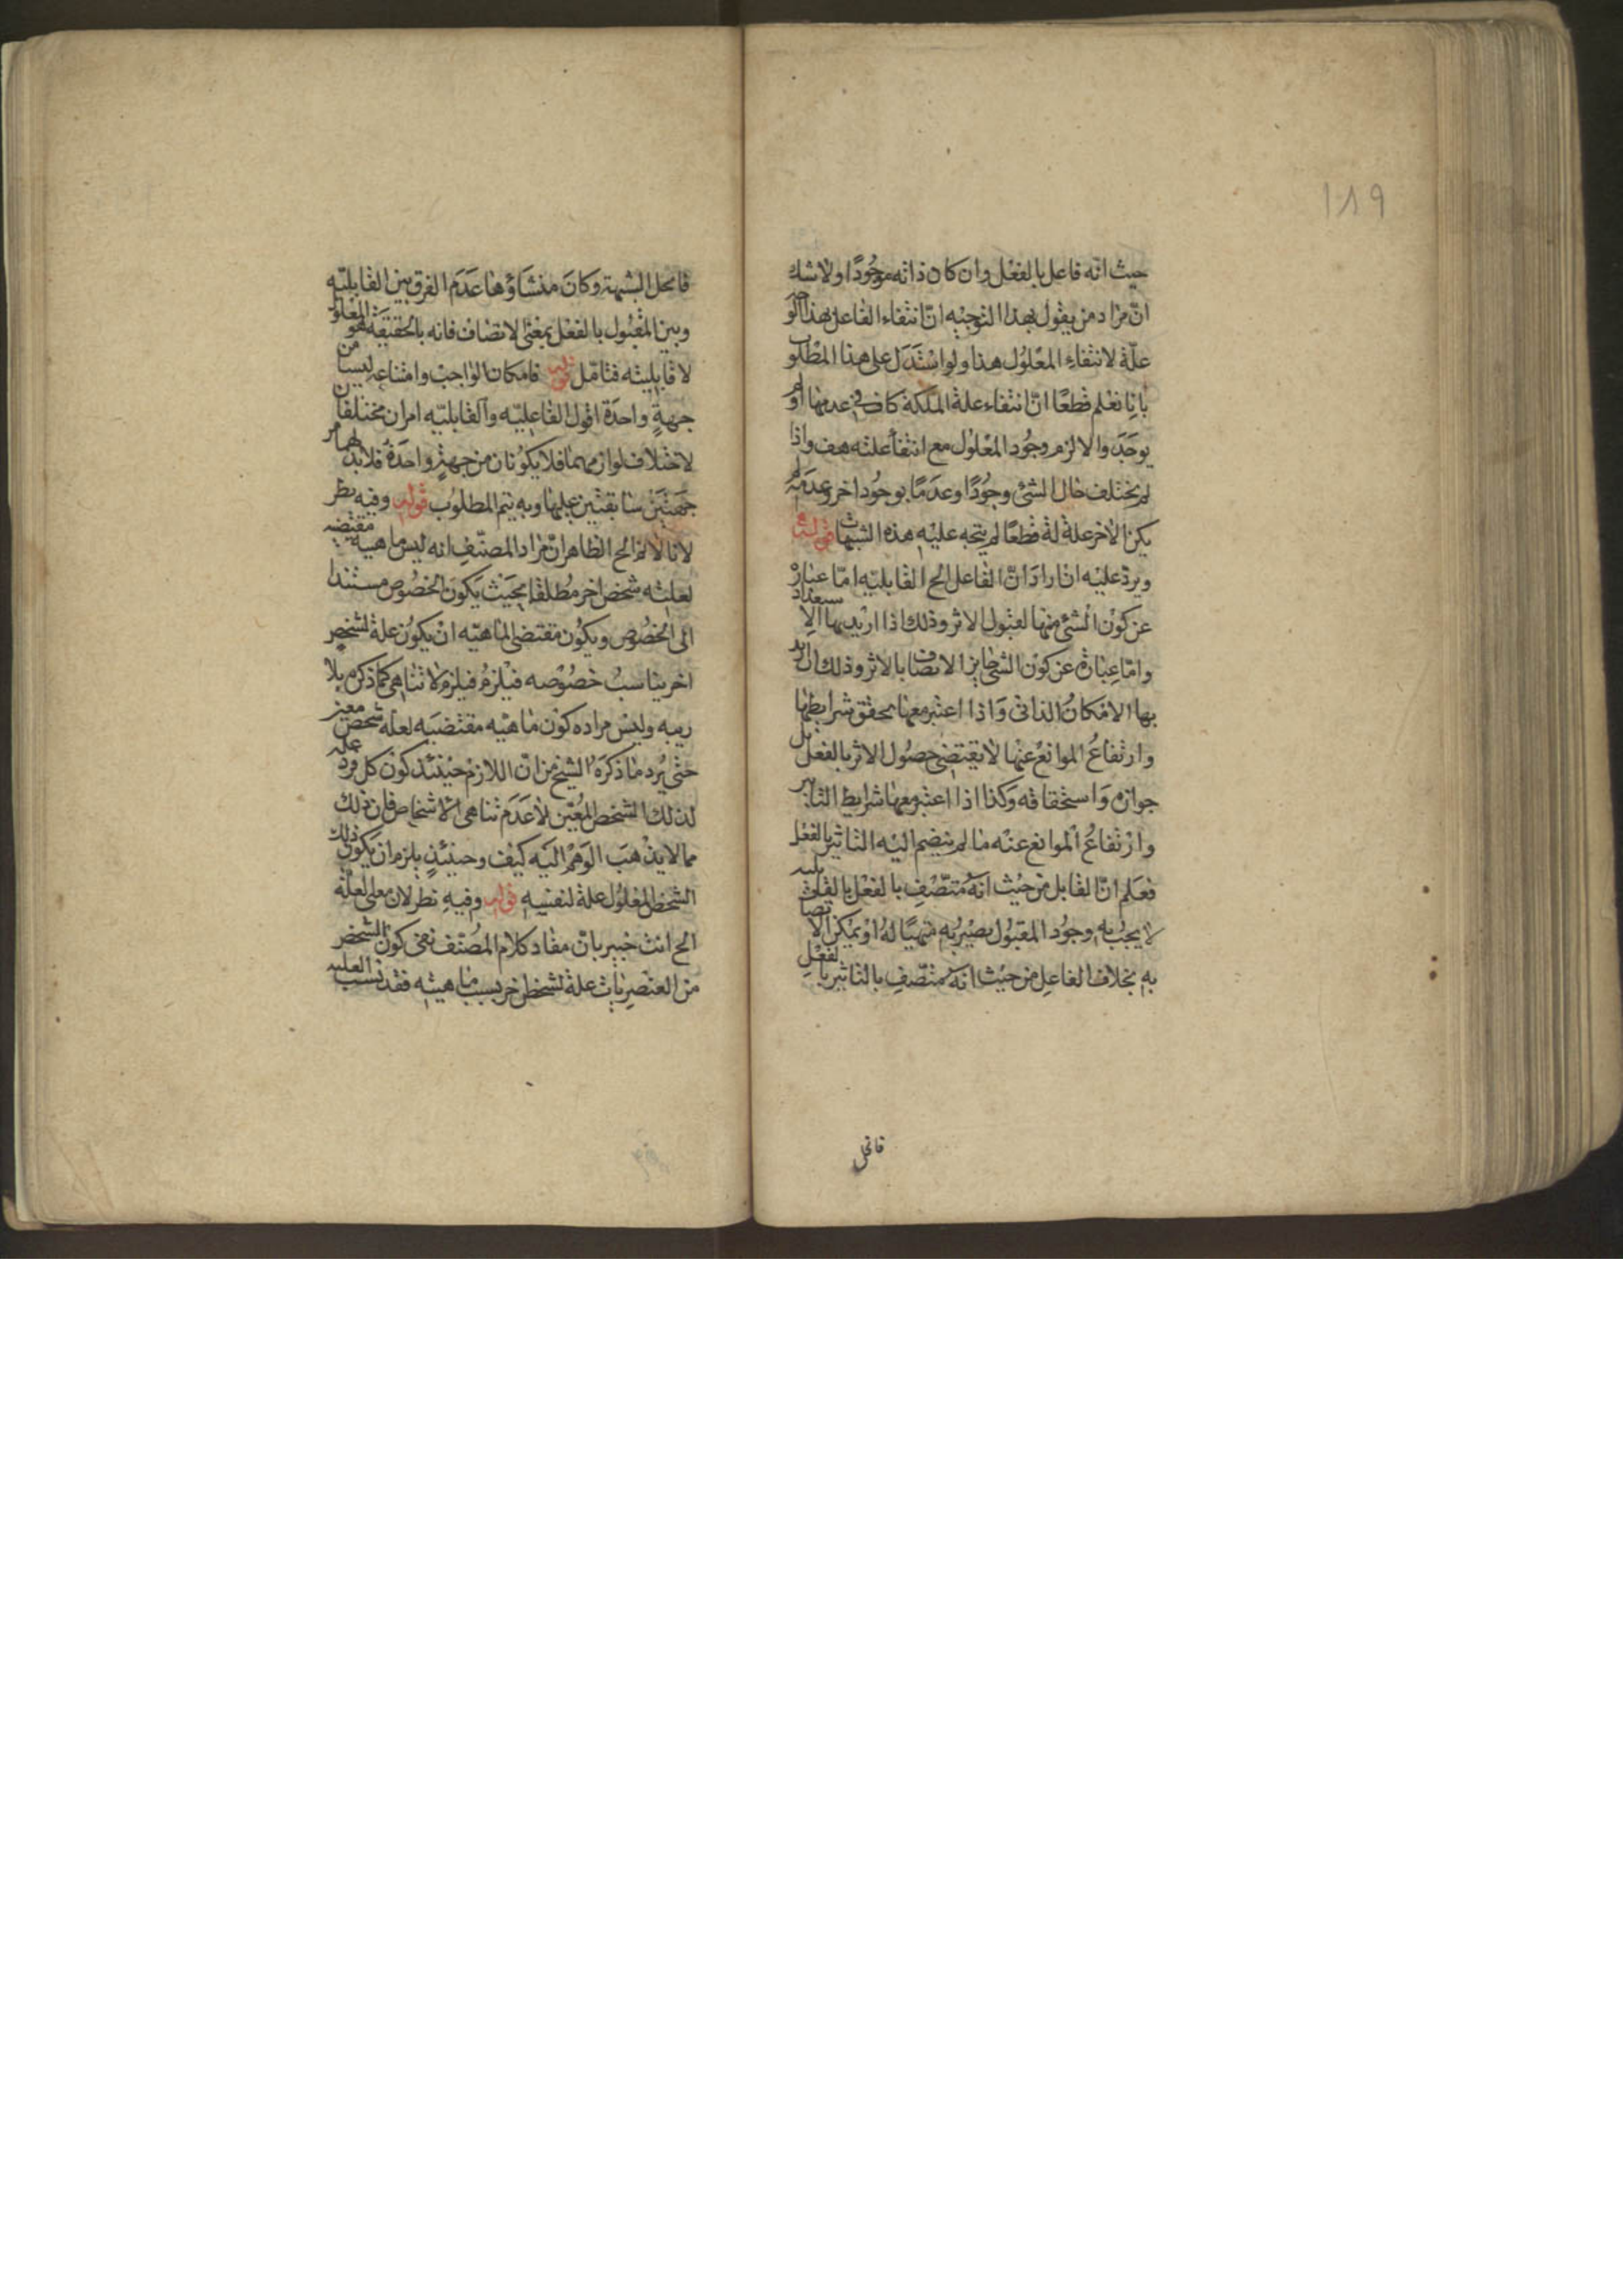 ١٨٩
حيث انه فاعل بالفعل وان كان ذاته موجودا ولا شك
ان مراد من يقول بهذا التوجيه ان انتفاء الفاعل بهذا الو
علة لانتفاء المعلول هذا ولو استدل على هذا المطلوب
بانا نعلم قطعا ان انتفاء علة الملكة كاف في عدمها او لم
يوجد والا لزم وجود المعلول مع انتفاء علته هف واذا
لم يختلف حال الشئ وجودا وعدما بوجود اخر وعدمه لم
يكن الاخر علة له قطعا لم يتجه عليه هذه الشبهات قوله
ويرد عليه ان اراد ان الفاعل الح القابلية اما عبارة
عن كون الشئ متهيا لقبول الاثر وذلك اذا اريد بها الاستعداد
واما عبارة عن كون الشئ جايز الاتصاف بالاثر وذلك ان اريد
بها الامكان الذاتى واذا اعتبر معها تحقق شرايطها
وارتفاع الموانع عنها لا يقتضى حصول الاثر بالفعل بل
جوازه واستحقاقه وكذا اذا اعتبر معها شرايط التاثير
وارتفاع الموانع عنه ما لم ينضم اليه التاثير بالفعل
فعلم ان القابل من حيث انه متصف بالفعل بالقابلية
لا يجب به وجود المقبول بصيربه متهيا له او يمكن الاتصا
به بخلاف الفاعل من حيث انه متصف بالتاثير بالفعل
فانحل
فانحل الشبهة وكان منشاؤها عدم الفرق بين القابلية
وبين المقبول بالفعل بمعنى الاتصاف فانه بالحقيقة هو المعلول
لا قابليته فتامل قوله فامكان الواجب وامتناعه ليسا من
جهة واحدة اقول الفاعلية والقابلية امران مختلفان
لاختلاف لوازمهما فلا يكونان من جهة واحدة فلابد لهما من
جهتين سابقتين عليها وبه يتم المطلوب قوله وفيه نظر
لانا لا نم الح الظاهر ان مراد المصنف انه ليس ماهيته مقتضيه
لعلته شخص اخر مطلقا بحيث يكون الخصوص مستندا
الى الخصوص ويكون مقتضى الماهيه ان يكون علة لشخص
اخر يناسب خصوصه فيلزم فيلزم لا تناهى كما ذكره بلا
ريبه وليس مراده كون ماهيه مقتضيه لعله شخص معين
حتى يرد ما ذكره الشيخ من ان اللازم حينئذ كون كل فرد علة
لذلك الشخص المعين لا عدم تناهى الاشخاص فان ذلك
مما لا يذهب الوهم اليه كيف وحينئذ يلزم ان يكون ذلك
الشخص المعلول علة لنفسه قوله وفيه نظر لان معلى لعلة
الح انت خبير بان مفاد كلام المصنف نفى كون الشخص
من العنصريات علة لشخص اخر بسبب ماهيته فقد نسب العلية